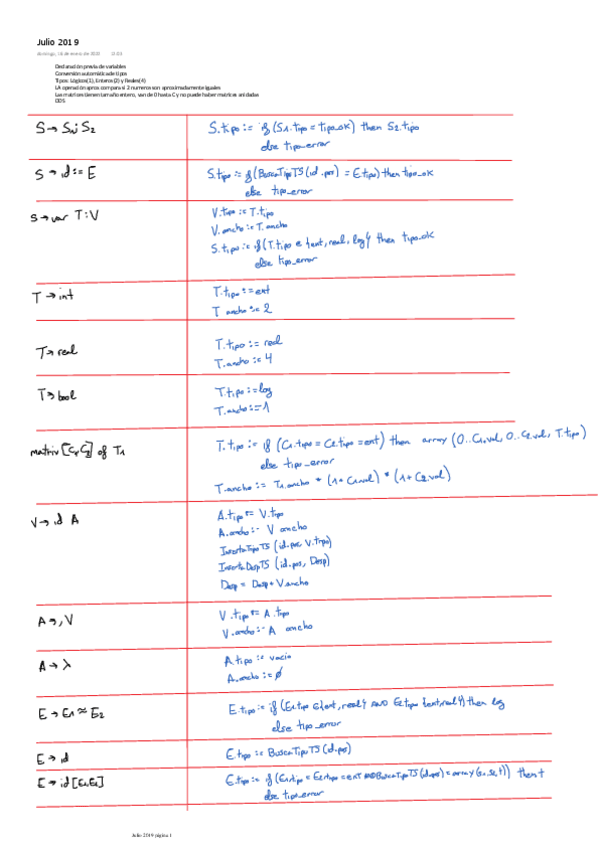 Julio 2019
domingo, 16 de enero de 2022
Declaración previa de variables
Conversión automática de tipo
Tipos: Lógicos(1), Enteros(2) y Reales(4)
LA operación aprox. compara si 2 numeros son aproximadamente iguales
Las matrices tienen tamaño entero, van de 0 hasta C y no puede haber matrices anidadas
DDS
S → S₁; S₂
S.tipo := if (S₁.tipo = tipo_ok) then S₂.tipo
else tipo_error
S → id := E
S.tipo := if (BuscaTipoTS (id.pos) = E.tipo) then tipo_ok
else tipo_error
S → var T : V
V.tipo := T.tipo
V.ancho := T.ancho
S.tipo := if (T.tipo ∈ {ent, real, log} then tipo_ok
else tipo_error
T → int
T.tipo := ent
T ancho := 2
T → real
T.tipo := real
T.ancho := 4
T → bool
T.tipo := log
T.ancho := 1
matriz [C₁, C₂] of T₁
T.tipo := if (C₁.tipo = C₂.tipo = ent) then array (0..C₁.val, 0..C₂.val, T.tipo)
else tipo_error
T.ancho := T₁.ancho * (1 + C₁.val) * (1 + C₂.val)
V → id A
A.tipo := V.tipo
A.ancho := V ancho
InsertaTipoTS (id.pos, V.tipo)
InsertaDespTS (id.pos, Desp)
Desp = Desp + V.ancho
A → , V
V.tipo := A.tipo
V.ancho := A ancho
A → λ
A.tipo := vacio
A.ancho := ∅
E → E₁ ≈ E₂
E.tipo := if (E₁.tipo ∈ {ent, real} AND E₂.tipo {ent, real}) then log
else tipo_error
E → id
E.tipo := BuscaTipoTS (id.pos)
E → id [E₁, E₂]
E.tipo := if (E₁.tipo = E₂.tipo = ent AND BuscaTipoTS (id.pos) = array (s₁, s₂, t)) then t
else tipo_error
Julio 2019 página 1